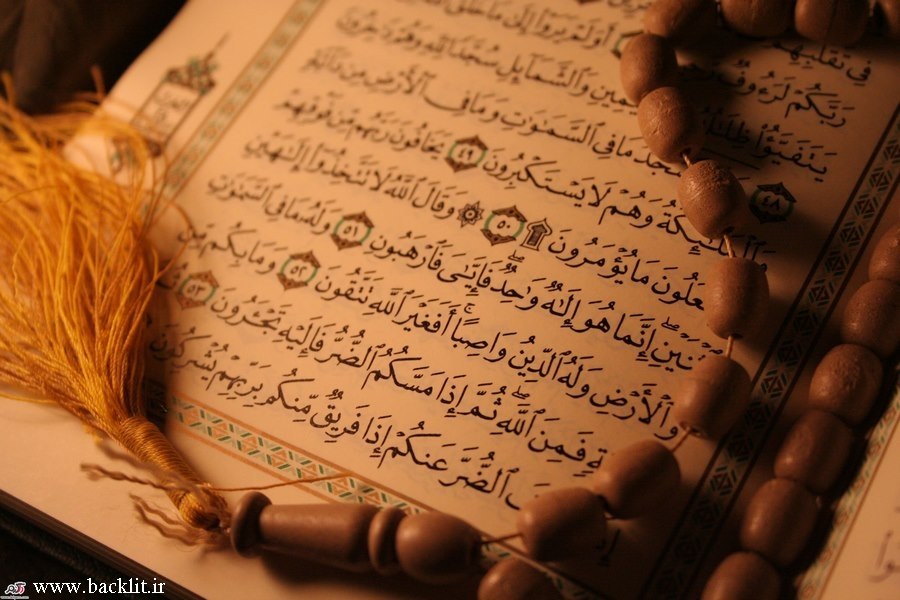 فِى تَقَلُّبِهِمْ
رَبَّكُمْ أَوَلَمْ يَرَوْا۟ إِلَىٰ مَا خَلَقَ
يَتَفَيَّؤُا۟ ظِلَٰلُهُۥ وَٱلشَّمَآئِلِ سُجَّدًا لِّلَّهِ وَهُمْ دَٰخِرُونَ
٤٨ مَا فِى ٱلسَّمَٰوَٰتِ وَمَا فِى ٱلْأَرْضِ مِن دَآبَّةٍ
وَٱلْمَلَٰٓئِكَةُ وَهُمْ لَا يَسْتَكْبِرُونَ ٤٩ يَخَافُونَ رَبَّهُم مِّن فَوْقِهِمْ
مَا يُؤْمَرُونَ ۩ ٥٠ ۞ وَقَالَ ٱللَّهُ لَا تَتَّخِذُوٓا۟ إِلَٰهَيْنِ
إِنَّمَا هُوَ إِلَٰهٌ وَٰحِدٌ فَإِيَّٰىَ فَٱرْهَبُونِ ٥١ وَلَهُۥ مَا فِى ٱلسَّمَٰوَٰتِ
وَٱلْأَرْضِ وَلَهُ ٱلدِّينُ وَاصِبًا ۚ أَفَغَيْرَ ٱللَّهِ تَتَّقُونَ ٥٢ وَمَا بِكُم مِّن
فَمِنَ ٱللَّهِ ۖ ثُمَّ إِذَا مَسَّكُمُ ٱلضُّرُّ فَإِلَيْهِ تَجْـَٔرُونَ ٥٣
ٱلضُّرَّ عَنكُمْ إِذَا فَرِيقٌ مِّنكُم بِرَبِّهِمْ يُشْرِكُونَ
www.backlit.ir